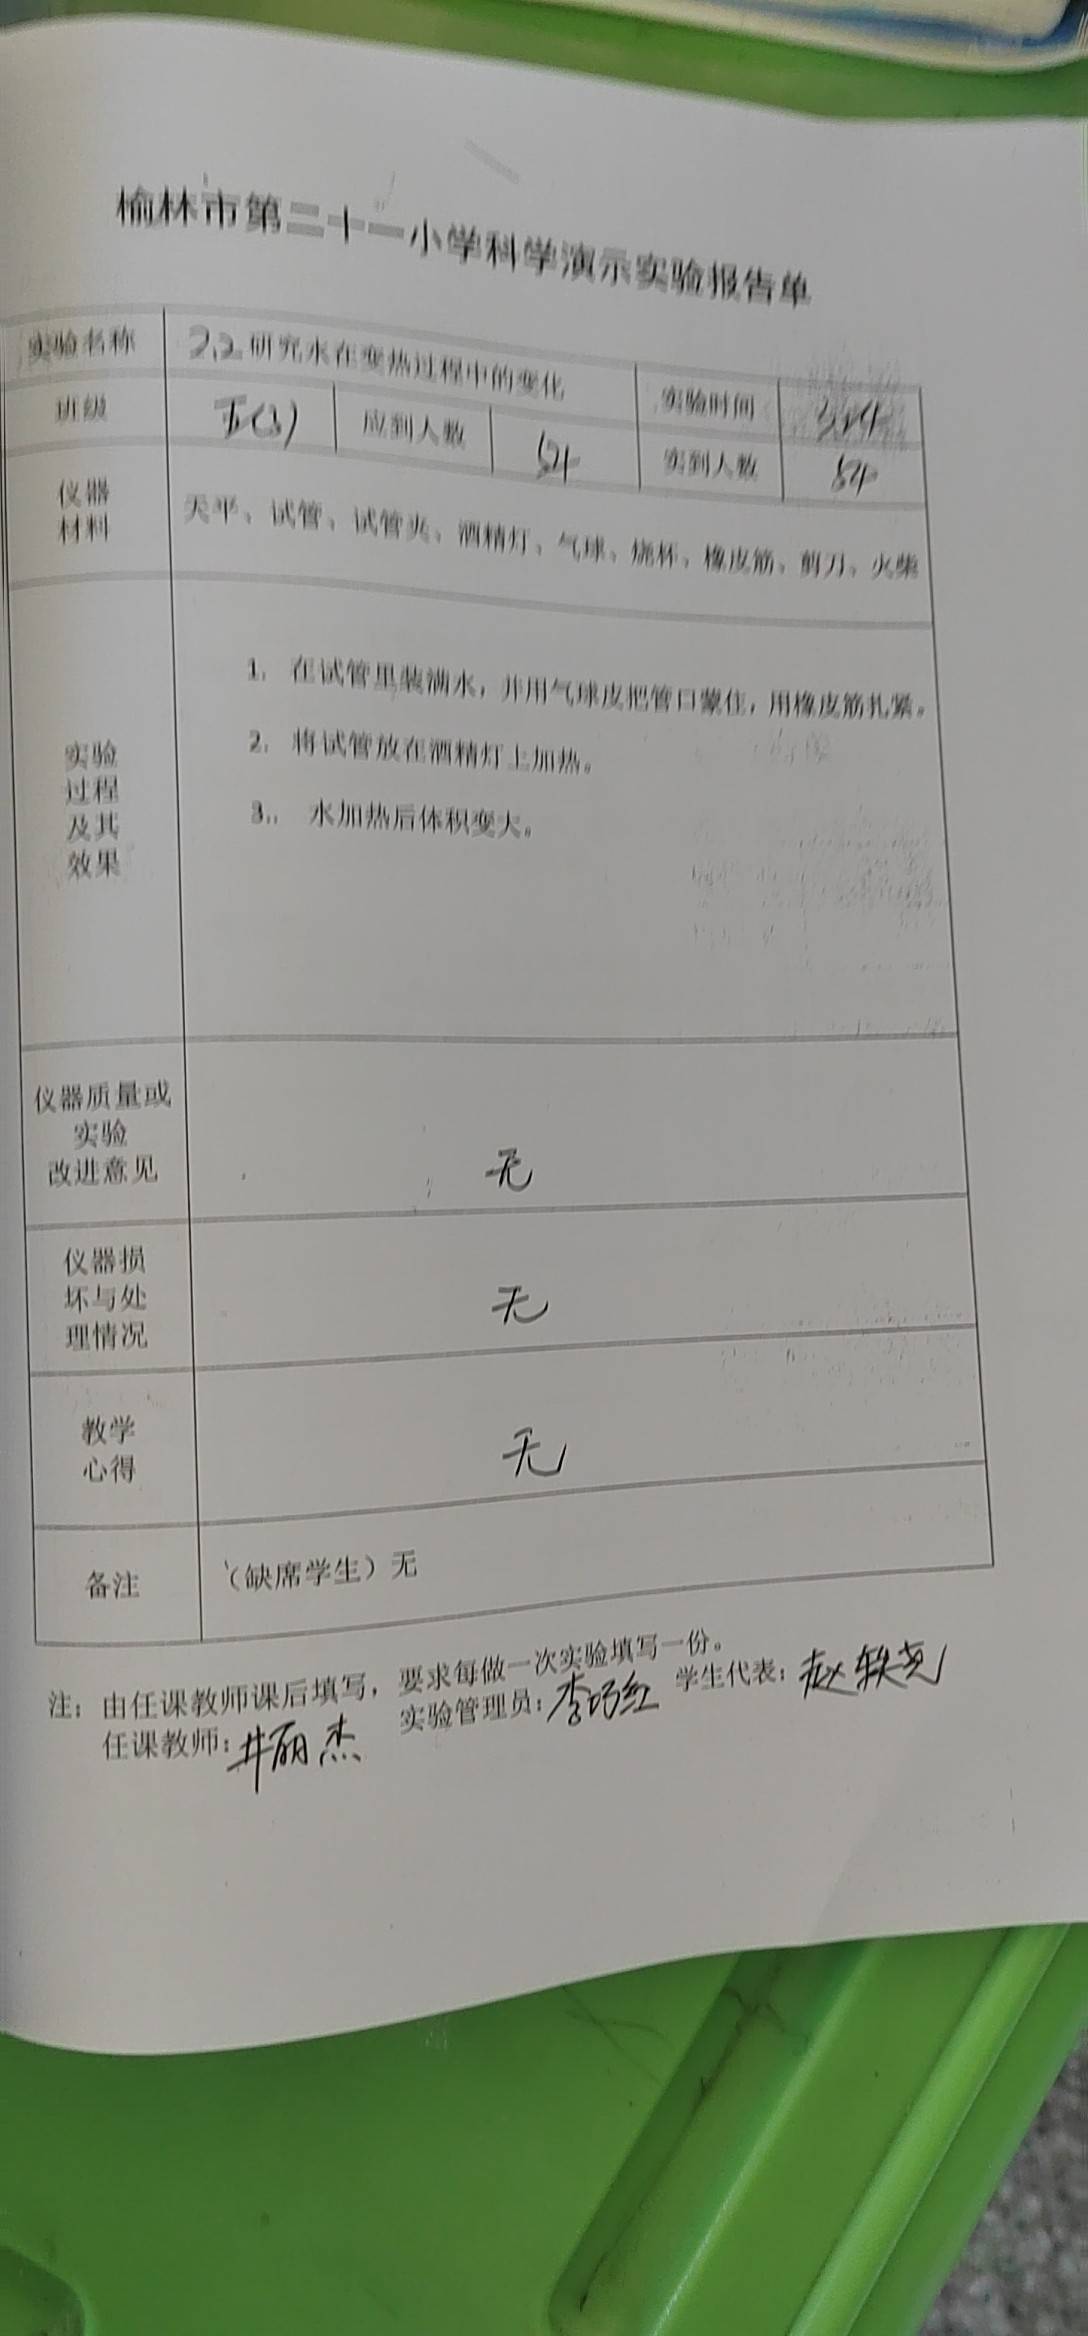 榆林市第二十一小学科学演示实验报告单
实验名称 2.2 研究水在变热过程中的变化 实验时间
班级 五(3) 应到人数 54 实到人数 54
仪器
材料
天平、试管、试管夹、酒精灯、气球、烧杯、橡皮筋、剪刀、火柴
实验
过程
及其
效果
1. 在试管里装满水，并用气球皮把管口蒙住，用橡皮筋扎紧。
2. 将试管放在酒精灯上加热。
3.. 水加热后体积变大。
仪器质量或
实验
改进意见
无
仪器损
坏与处
理情况
无
教学
心得
无
备注 （缺席学生）无
注：由任课教师课后填写，要求每做一次实验填写一份。
任课教师：井丽杰 实验管理员：李巧红 学生代表：赵轶尧